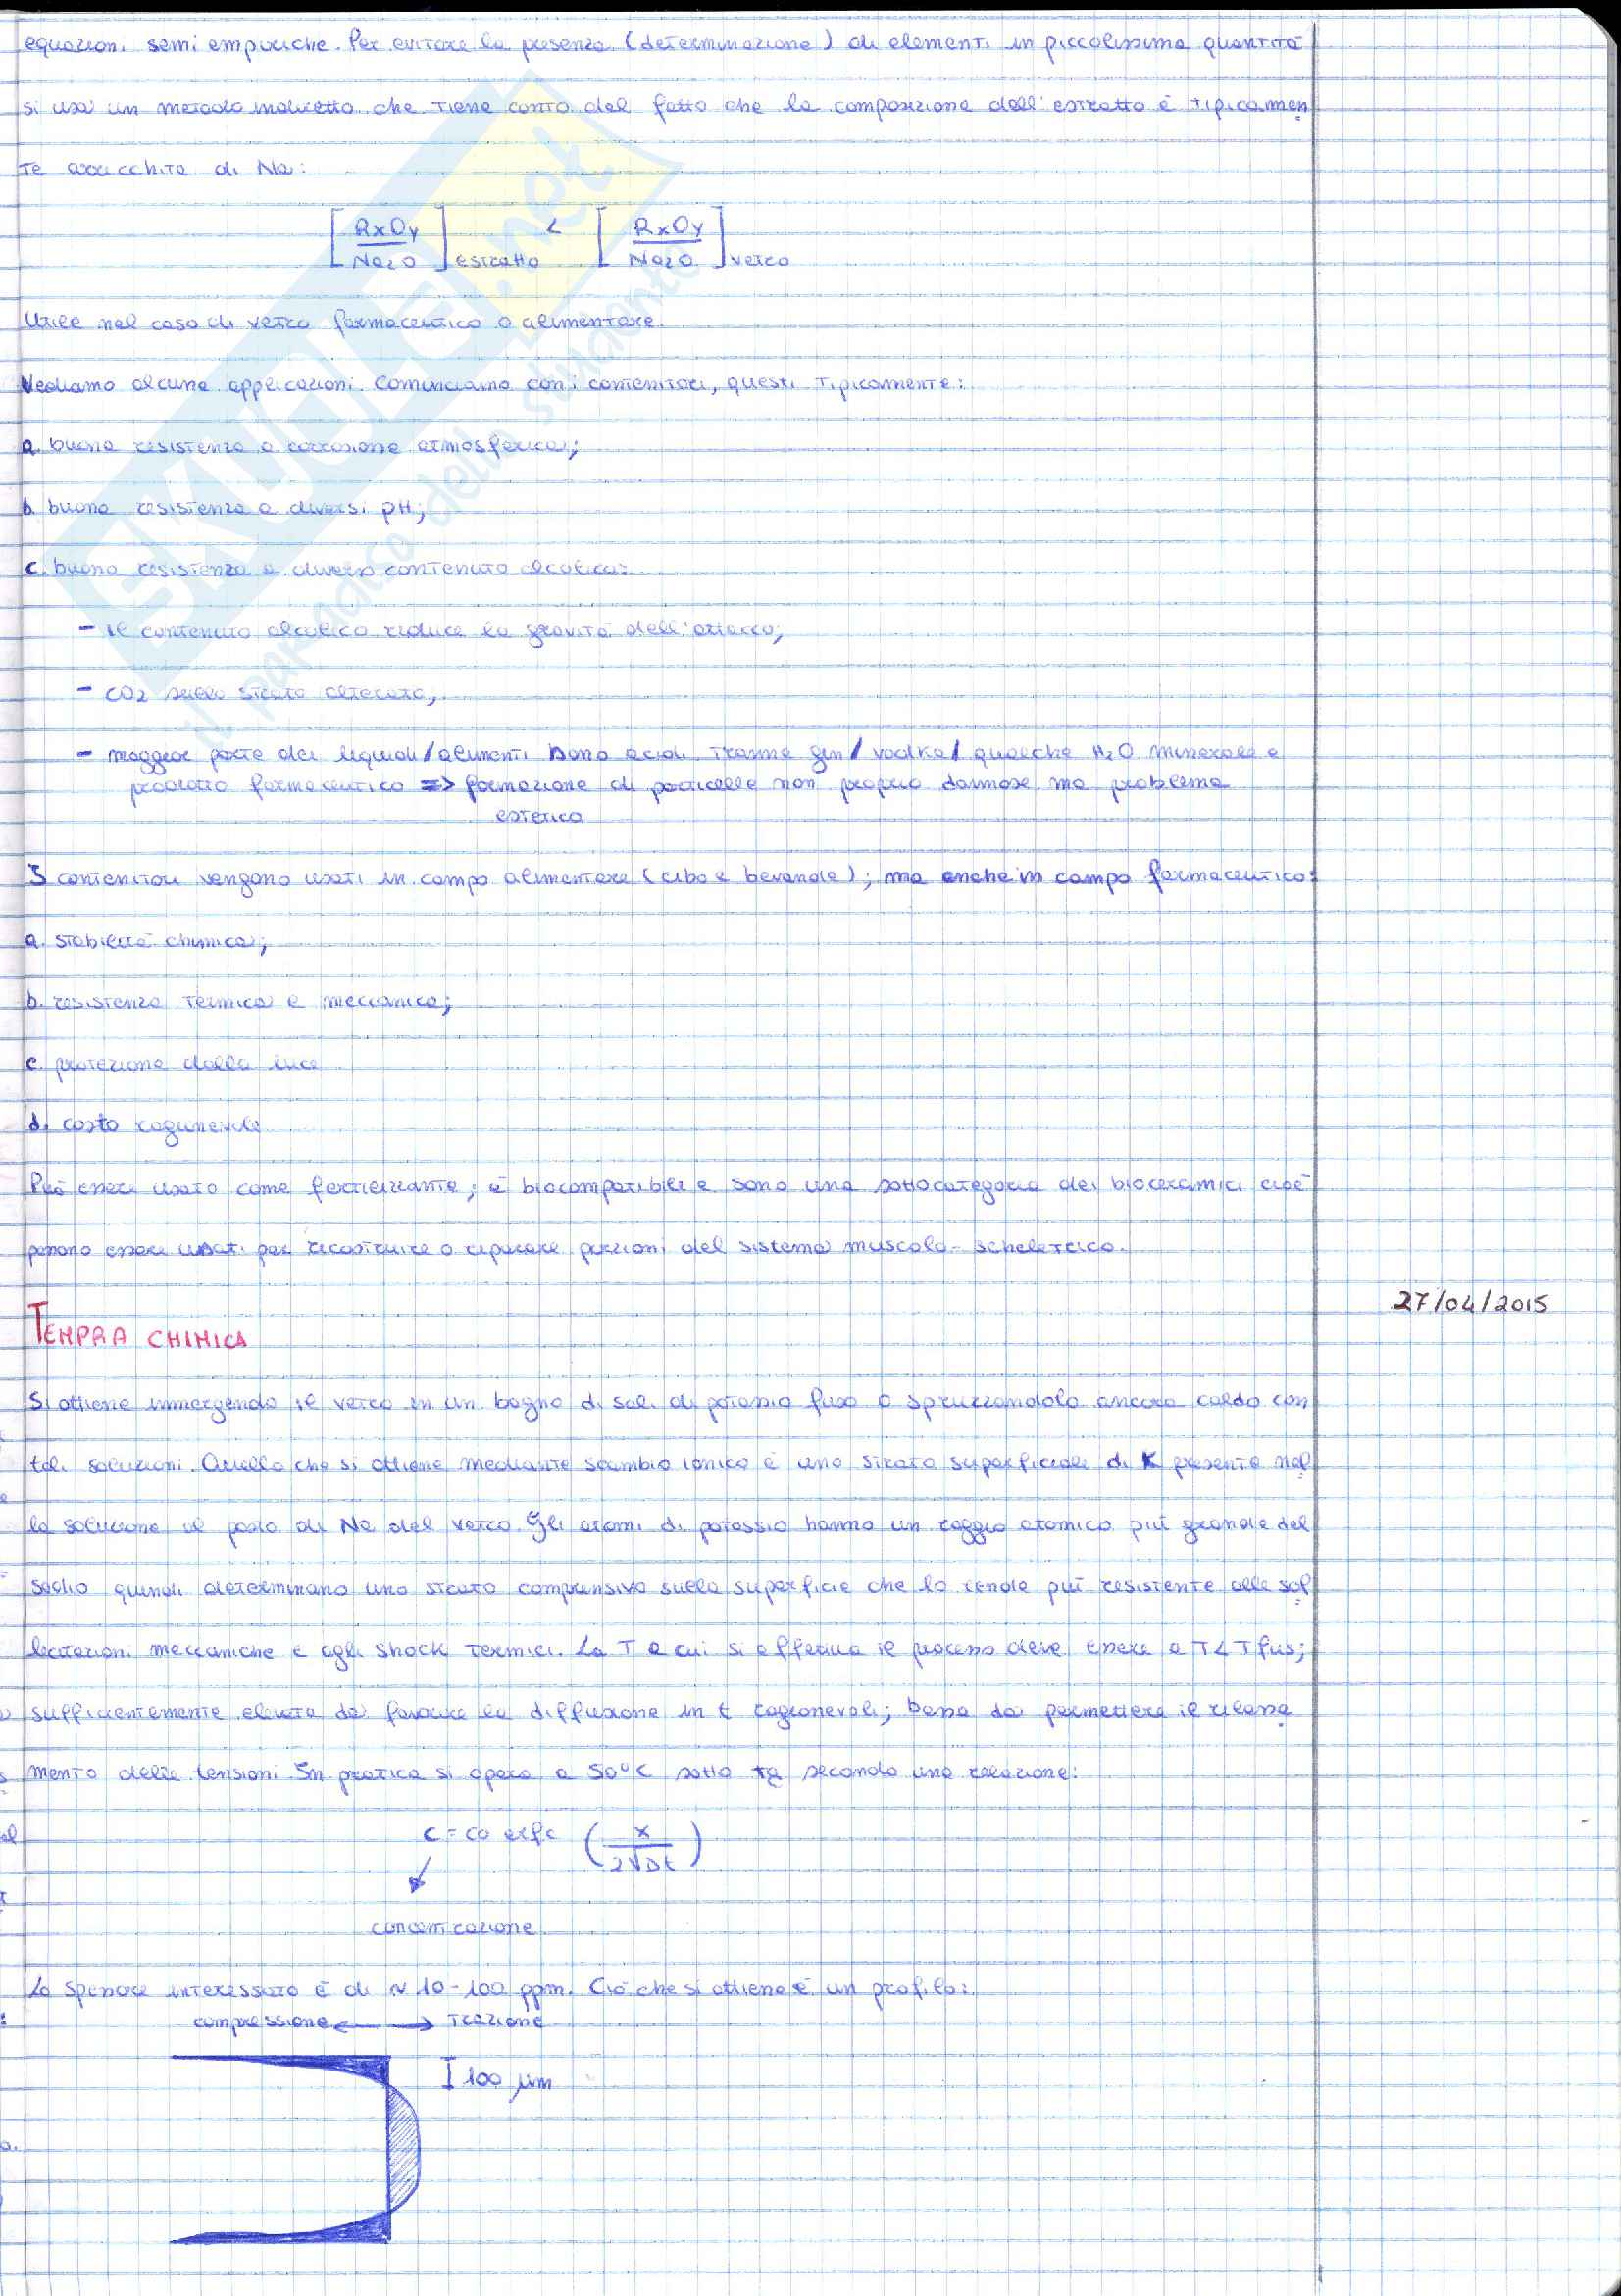 equazioni semi empiriche. Per evitare la presenza (determinazione) di elementi in piccolissima quantità
si usa un metodo indiretto che tiene conto del fatto che la composizione dell'estratto è tipicamen
te arricchita di Na:
[RxOy / Na2O] estratto < [RxOy / Na2O] vetro
Utile nel caso di vetro farmaceutico o alimentare.
Vediamo alcune applicazioni. Cominciamo con i contenitori, questi tipicamente:
a. buona resistenza a corrosione atmosferica;
b. buona resistenza a diversi pH;
c. buona resistenza a diverso contenuto alcolico:
- il contenuto alcolico riduce la gravità dell'attacco;
- CO2 sullo strato alterato;
- maggior parte dei liquidi/alimenti sono acidi tranne gin/vodka/qualche H2O minerale e
prodotto farmaceutico => formazione di particelle non proprio dannose ma problema
estetico
I contenitori vengono usati in campo alimentare (cibo e bevande); ma anche in campo farmaceutico:
a. stabilità chimica;
b. resistenza termica e meccanica;
c. protezione dalla luce
d. costo ragionevole
Può essere usato come fertilizzante; è biocompatibile e sono una sottocategoria dei bioceramici cioè
possono essere usati per ricostruire o riparare porzioni del sistema muscolo-scheletrico.
27/04/2015
TEMPRA CHIMICA
Si ottiene immergendo il vetro in un bagno di sali di potassio fuso o spruzzandolo ancora caldo con
tali soluzioni. Quello che si ottiene mediante scambio ionico è uno strato superficiale di K presente nel
la soluzione al posto di Na del vetro. Gli atomi di potassio hanno un raggio atomico più grande del
sodio quindi determinano uno strato compressivo sulla superficie che lo rende più resistente alle sol
lecitazioni meccaniche e agli shock termici. La T a cui si effettua il processo deve essere a T<Tfus;
sufficientemente elevata da favorire la diffusione in t ragionevoli; bassa da permettere il rilassa
mento delle tensioni. In pratica si opera a 50°C sotto tg secondo una relazione:
c = co erfc (x / 2√Dt)
concentrazione
Lo spessore interessato è di ~ 10-100 ppm. Ciò che si ottiene è un profilo:
compressione ← → trazione
I 100 μm
SKUOLA.net
il paradiso dello studente